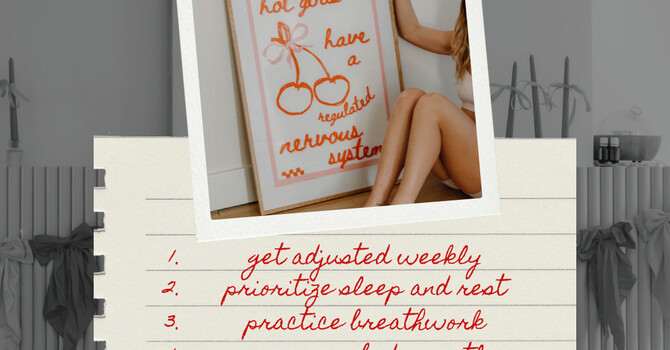 hot girls
have
a
regulated
nervous
system
1. get adjusted weekly
2. prioritize sleep and rest
3. practice breathwork